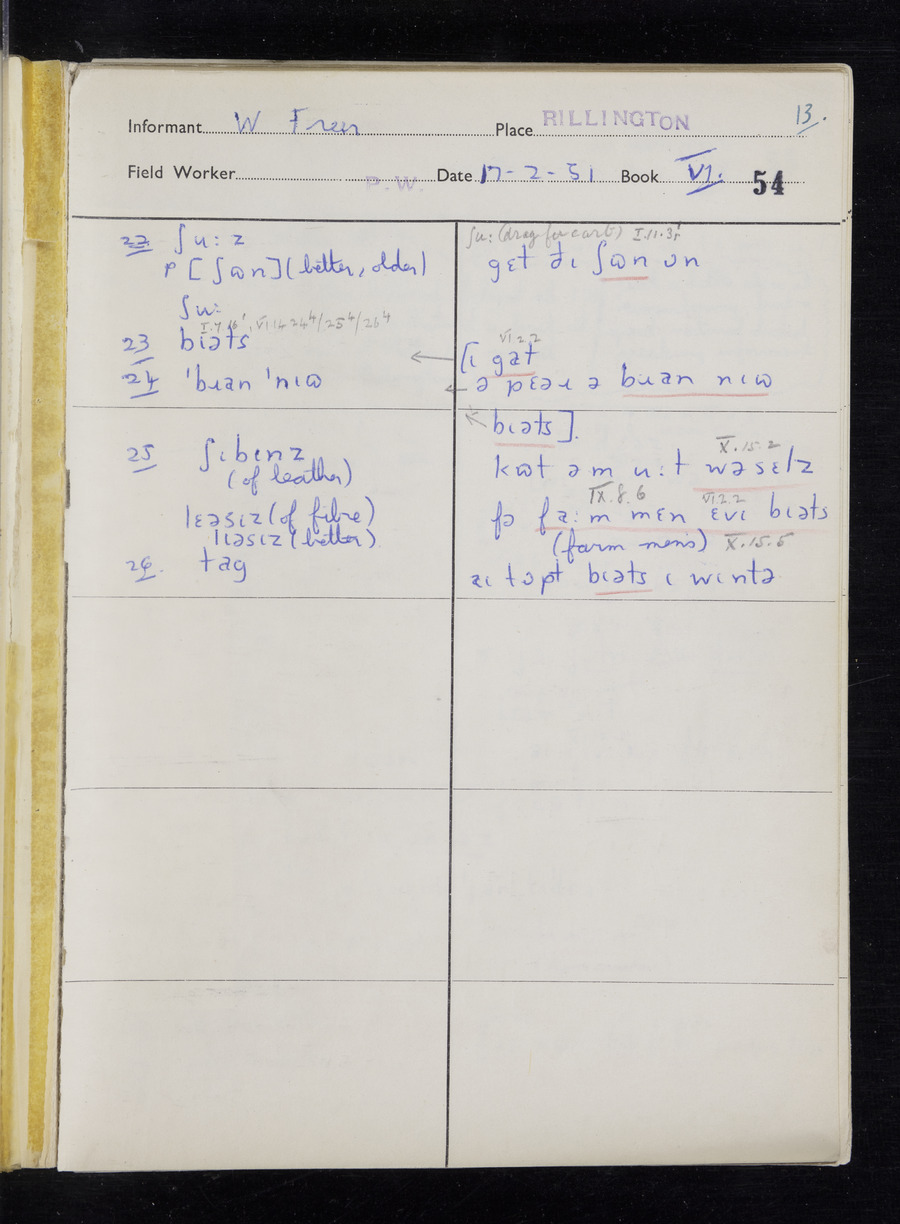 13.
Informant W Freer Place RILLINGTON
Field Worker P.W. Date 17-2-51 Book VI. 54
22 ʃu:z
P [ʃɷn] (better, older)
ʃu:
I.7.16', VI.14.24⁴/25⁴/26⁴
23 biəts
24 'bɹan 'nɪɷ
25 ʃibinz
(of leather)
lɛəsɪz (of fibre)
lɪəsɪz (better)
26. tag
ʃu: (drag for cart) I.11.3r'
gɛt ðɪ ʃɷn ɒn
VI.2.2
[ɪ gat
ə pɛəɹ ə bɹan nɪɷ
bɪəts].
X.15.2
kɷt əm u:t wəsɛlz
IX.8.6 VI.2.2
fə fa:m mɛn ɛvɪ bɪəts
(farm men's) X.15.5
aɪ tɒpt bɪəts ɪ wɪntə